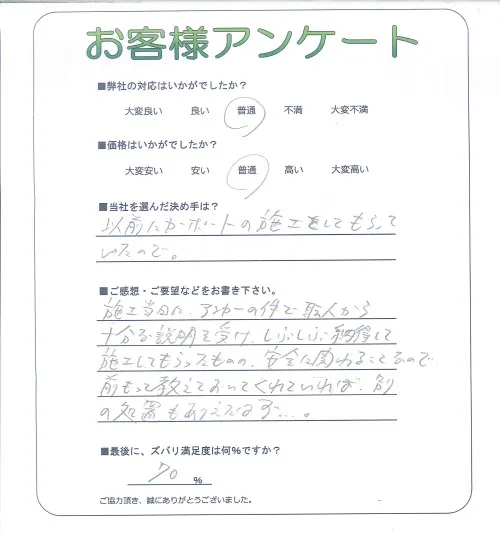 お客様アンケート
■弊社の対応はいかがでしたか？
大変良い 良い 普通 不満 大変不満
■価格はいかがでしたか？
大変安い 安い 普通 高い 大変高い
■当社を選んだ決め手は？
以前にカーポートの施工をしてもらって
いたので。
■ご感想・ご要望などをお書き下さい。
施工当日に、アンカーの件で職人から
十分な説明を受け、しぶしぶ納得して
施工してもらったものの、安全に関わることなので、
前もって教えておいてくれていれば、別
の処置もありえたはず…。
■最後に、ズバリ満足度は何％ですか？
70 ％
ご協力頂き、誠にありがとうございました。